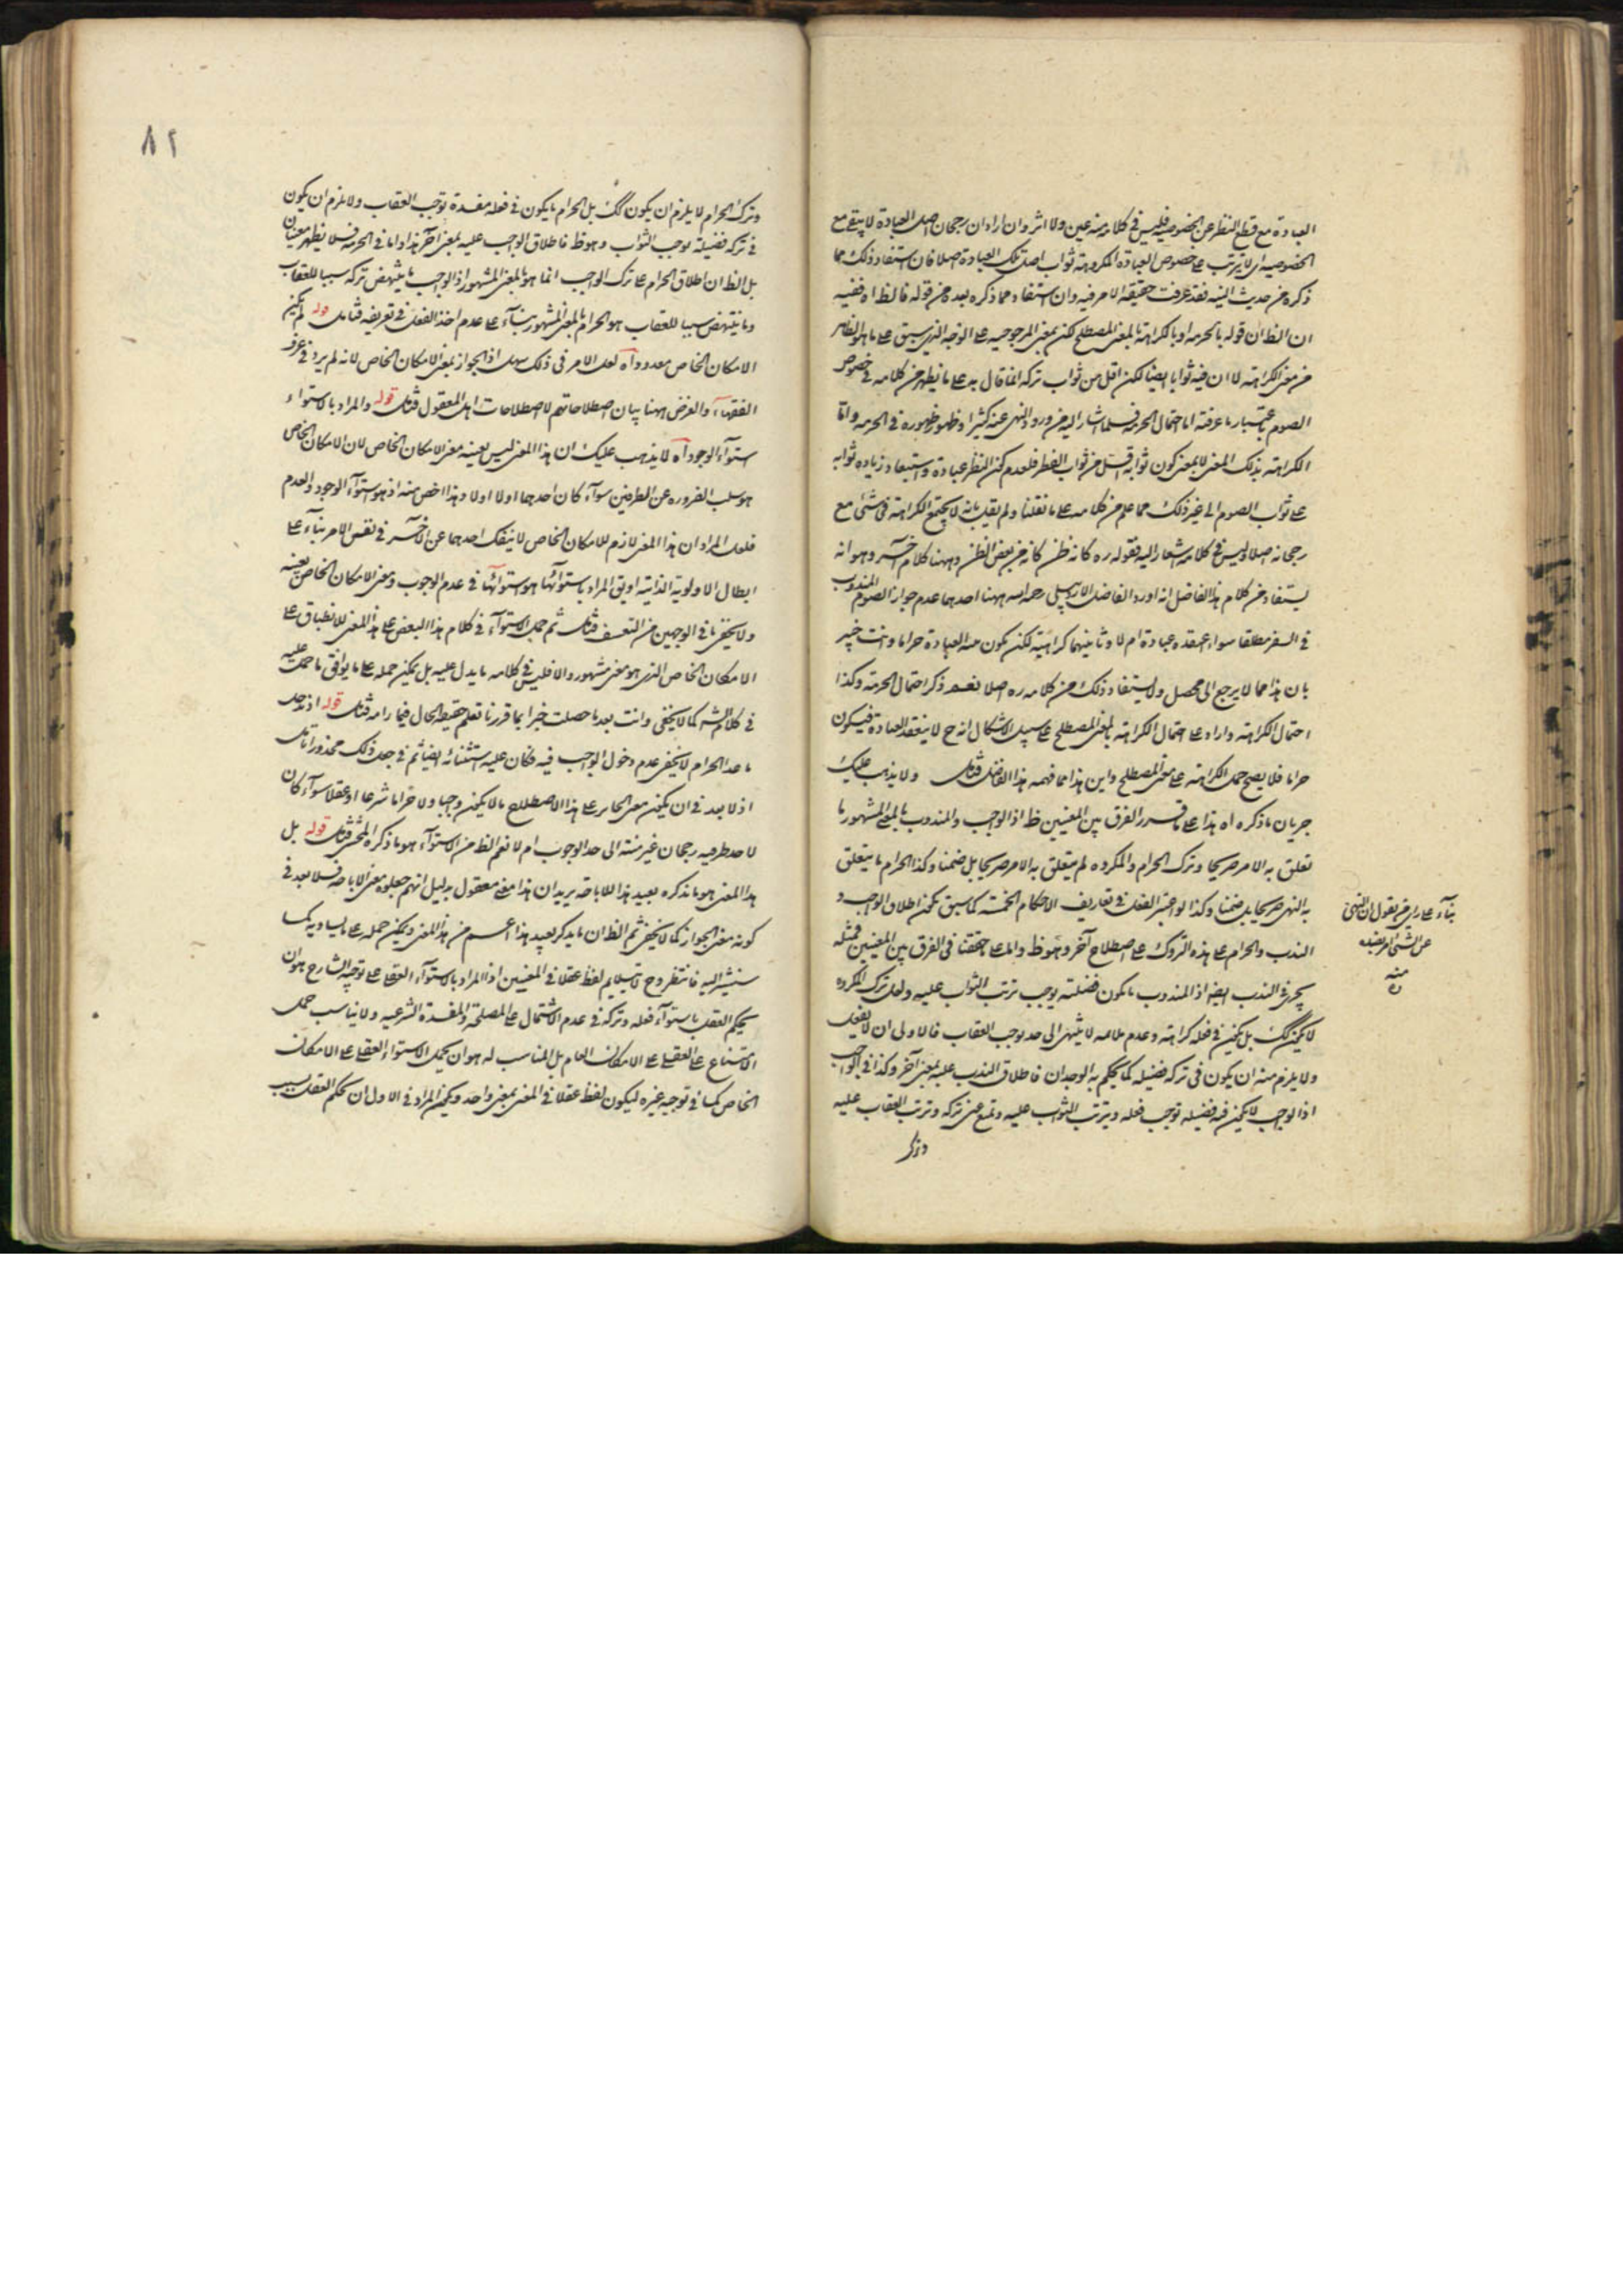 العبادة مع قطع النظر عن الخصوصية فليس في كلامه منه عين ولا اثر وان اراد ان رجحان اصل العبادة لا يبقى مع
الخصوصية اى لا يترتب على خصوص العبادة المكروهة ثواب اصل تلك العبادة اصلا فان استفاد ذلك مما
ذكره من حديث النية فقد عرفت حقيقة الامر فيه وان استفاد مما ذكره بعده من قوله فالظ اه ففيه
ان الظ ان قوله بالحرمة او بالكراهة بالمعنى المصطلح لكن بمعنى المرجوحية على الوجه الذى سبق على ما هو الظاهر
من معنى الكراهة لا ان فيه ثوابا ايضا لكن اقل من ثواب تركه انما قال به على ما يظهر من كلامه في خصوص
الصوم باعتبار ما عرفته اما احتمال الحرمة فلما اشار اليه من ورود النهى عنه كثيرا وظهور ظهوره في الحرمة واما
الكراهة بذلك المعنى لا بمعنى كون ثوابه اقل من ثواب الفطر فلعدم كون الفطر عبادة واستبعاد زيادة ثوابه
على ثواب الصوم الى غير ذلك مما علم من كلامه على ما نقلنا ولم يقل بانه لا يجتمع الكراهة في شئ مع
رجحانه اصلا وليس في كلامه اشعار اليه فقوله ره كانه ظن كانه من بعض الظن وههنا كلام آخر وهو انه
يستفاد من كلام هذا الفاضل انه اورد الفاضل الاردبيلى رحمه الله ههنا احدهما عدم جواز الصوم المندوب
في السفر مطلقا سواء اعتقده عبادة ام لا وثانيهما كراهيته لكن يكون منه العبادة حراما وانت خبير
بان هذا مما لا يرجع الى محصل ولا يستفاد ذلك من كلامه ره اصلا نعم ذكر احتمال الحرمة وكذا
احتمال الكراهة واراد على احتمال الكراهة بالمعنى المصطلح على سبيل الاشكال انه ح لا ينعقد العبادة فيكون
حراما فلا يصح حمل الكراهة على معنى المصطلح واين هذا مما فهمه هذا الفاضل فتامل ولا يذهب عليك
جريان ما ذكره اه هذا على ما قرر الفرق بين المعنيين ظ اذ الواجب والمندوب بالمعنى المشهور ما
تعلق به الامر صريحا وترك الحرام والمكروه لم يتعلق به الامر صريحا بل ضمنا وكذا الحرام ما يتعلق
به النهى صريحا بل ضمنا وكذا لو اعتبر الفعل في تعاريف الاحكام الخمسة كما سبق يكون اطلاق الواجب و
الندب والحرام على هذه التروك على اصطلاح آخر وهو ظ واما على ما حققنا في الفرق بين المعنيين فمثله
يجرى في الندب ايضا اذ المندوب ما يكون فضيلته يوجب ترتب الثواب عليه ولعل ترك المكروه
لا يكون كك بل يكون في فعله كراهة وعدم ملائمة لا ينتهى الى حد يوجب العقاب فالاولى ان لا يفعل
ولا يلزم منه ان يكون في تركه فضيلة كما يحكم به الوجدان فاطلاق الندب عليه بمعنى آخر وكذا في الواجب
اذ الواجب لا يكون فيه فضيلة توجب فعله ويترتب الثواب عليه ويمنع من تركه وترتب العقاب عليه
وترك
بناء على راى من يقول ان النهى
عن الشئ امر بضده
منه
ره
٨٢
وترك الحرام لا يلزم ان يكون كك بل الحرام ما يكون في فعله مفسدة توجب العقاب ولا يلزم ان يكون
في تركه فضيلة يوجب الثواب وهو ظ فاطلاق الواجب عليه بمعنى آخر هذا واما في الحرمة فلا يظهر معنيان
بل الظ ان اطلاق الحرام على ترك الواجب انما هو بالمعنى المشهور اذ الواجب ما ينتهض تركه سببا للعقاب
وما ينتهض سببا للعقاب هو الحرام بالمعنى المشهور بناء على عدم اخذ الفعل في تعريفه فتامل قوله لم يكن
الامكان الخاص معدودا اه لعل الامر في ذلك سهل اذ الجواز بمعنى الامكان الخاص لانه لم يرد في عرف
الفقهاء والغرض ههنا بيان اصطلاحاتهم لا اصطلاحات اهل المعقول فتامل قوله والمراد بالاستواء
استواء الوجود اه لا يذهب عليك ان هذا المعنى ليس بعينه معنى الامكان الخاص لان الامكان الخاص
هو سلب الضرورة عن الطرفين سواء كان احدهما اولا اولا وهذا اخص منه اذ هو استواء الوجود والعدم
فلعل المراد ان هذا المعنى لازم للامكان الخاص لا ينفك احدهما عن الآخر في نفس الامر بناء على
ابطال الاولوية الذاتية او يق المراد باستوائهما هو استوائهما في عدم الوجوب ومعنى الامكان الخاص بعينه
ولا يخفى ما في الوجهين من التعسف فتامل ثم حمل الاستواء في كلام هذا البعض على هذا المعنى للانطباق على
الامكان الخاص الذى هو معنى مشهور والا فليس في كلامه ما يدل عليه بل يمكن حمله على ما يوافق ما حمل عليه
في كلام الشه كما لا يخفى وانت بعد ما حصلت خبرا بما قررنا تعلم حقيقة الحال فيما رامه فتامل قوله اذ يدخل
ما عدا الحرام لا يخفى عدم دخول الواجب فيه فكان عليه استثنائه ايضا ثم في جعل ذلك محذورا تامل
اذ لا بعد في ان يكون معنى الجائز على هذا الاصطلاح ما لا يكون واجبا ولا حراما شرعا او عقلا سواء كان
لاحد طرفيه رجحان غير منته الى حد الوجوب ام لا نعم الظ من الاستواء هو ما ذكره المحشى فتامل قوله بل
هذا المعنى هو ما نذكره بعيد هذا للاباحة يريد ان هذا معنى معقول بدليل انهم جعلوه معنى الاباحة فلا بعد في
كونه معنى الجواز كما لا يخفى ثم الظ ان ما يذكر بعيد هذا اعم من هذا المعنى ويمكن حمله على ما يساويه كما
سنشير اليه فانتظر وح لا يلايم لفظ عقلا في المعنيين اذ المراد بالاستواء العقلى على توجيه الشارح هو ان
يحكم العقل باستواء فعله وتركه في عدم الاشتمال على المصلحة والمفسدة الشرعية ولا يناسب حمل
الامتناع على العقلى على الامكان العام بل المناسب له هو ان يحمل الاستواء العقلى على الامكان
الخاص كما في توجيه غيره ليكون لفظ عقلا في المعنى بمعنى واحد ويكون المراد في الاول ان يحكم العقل بسبب